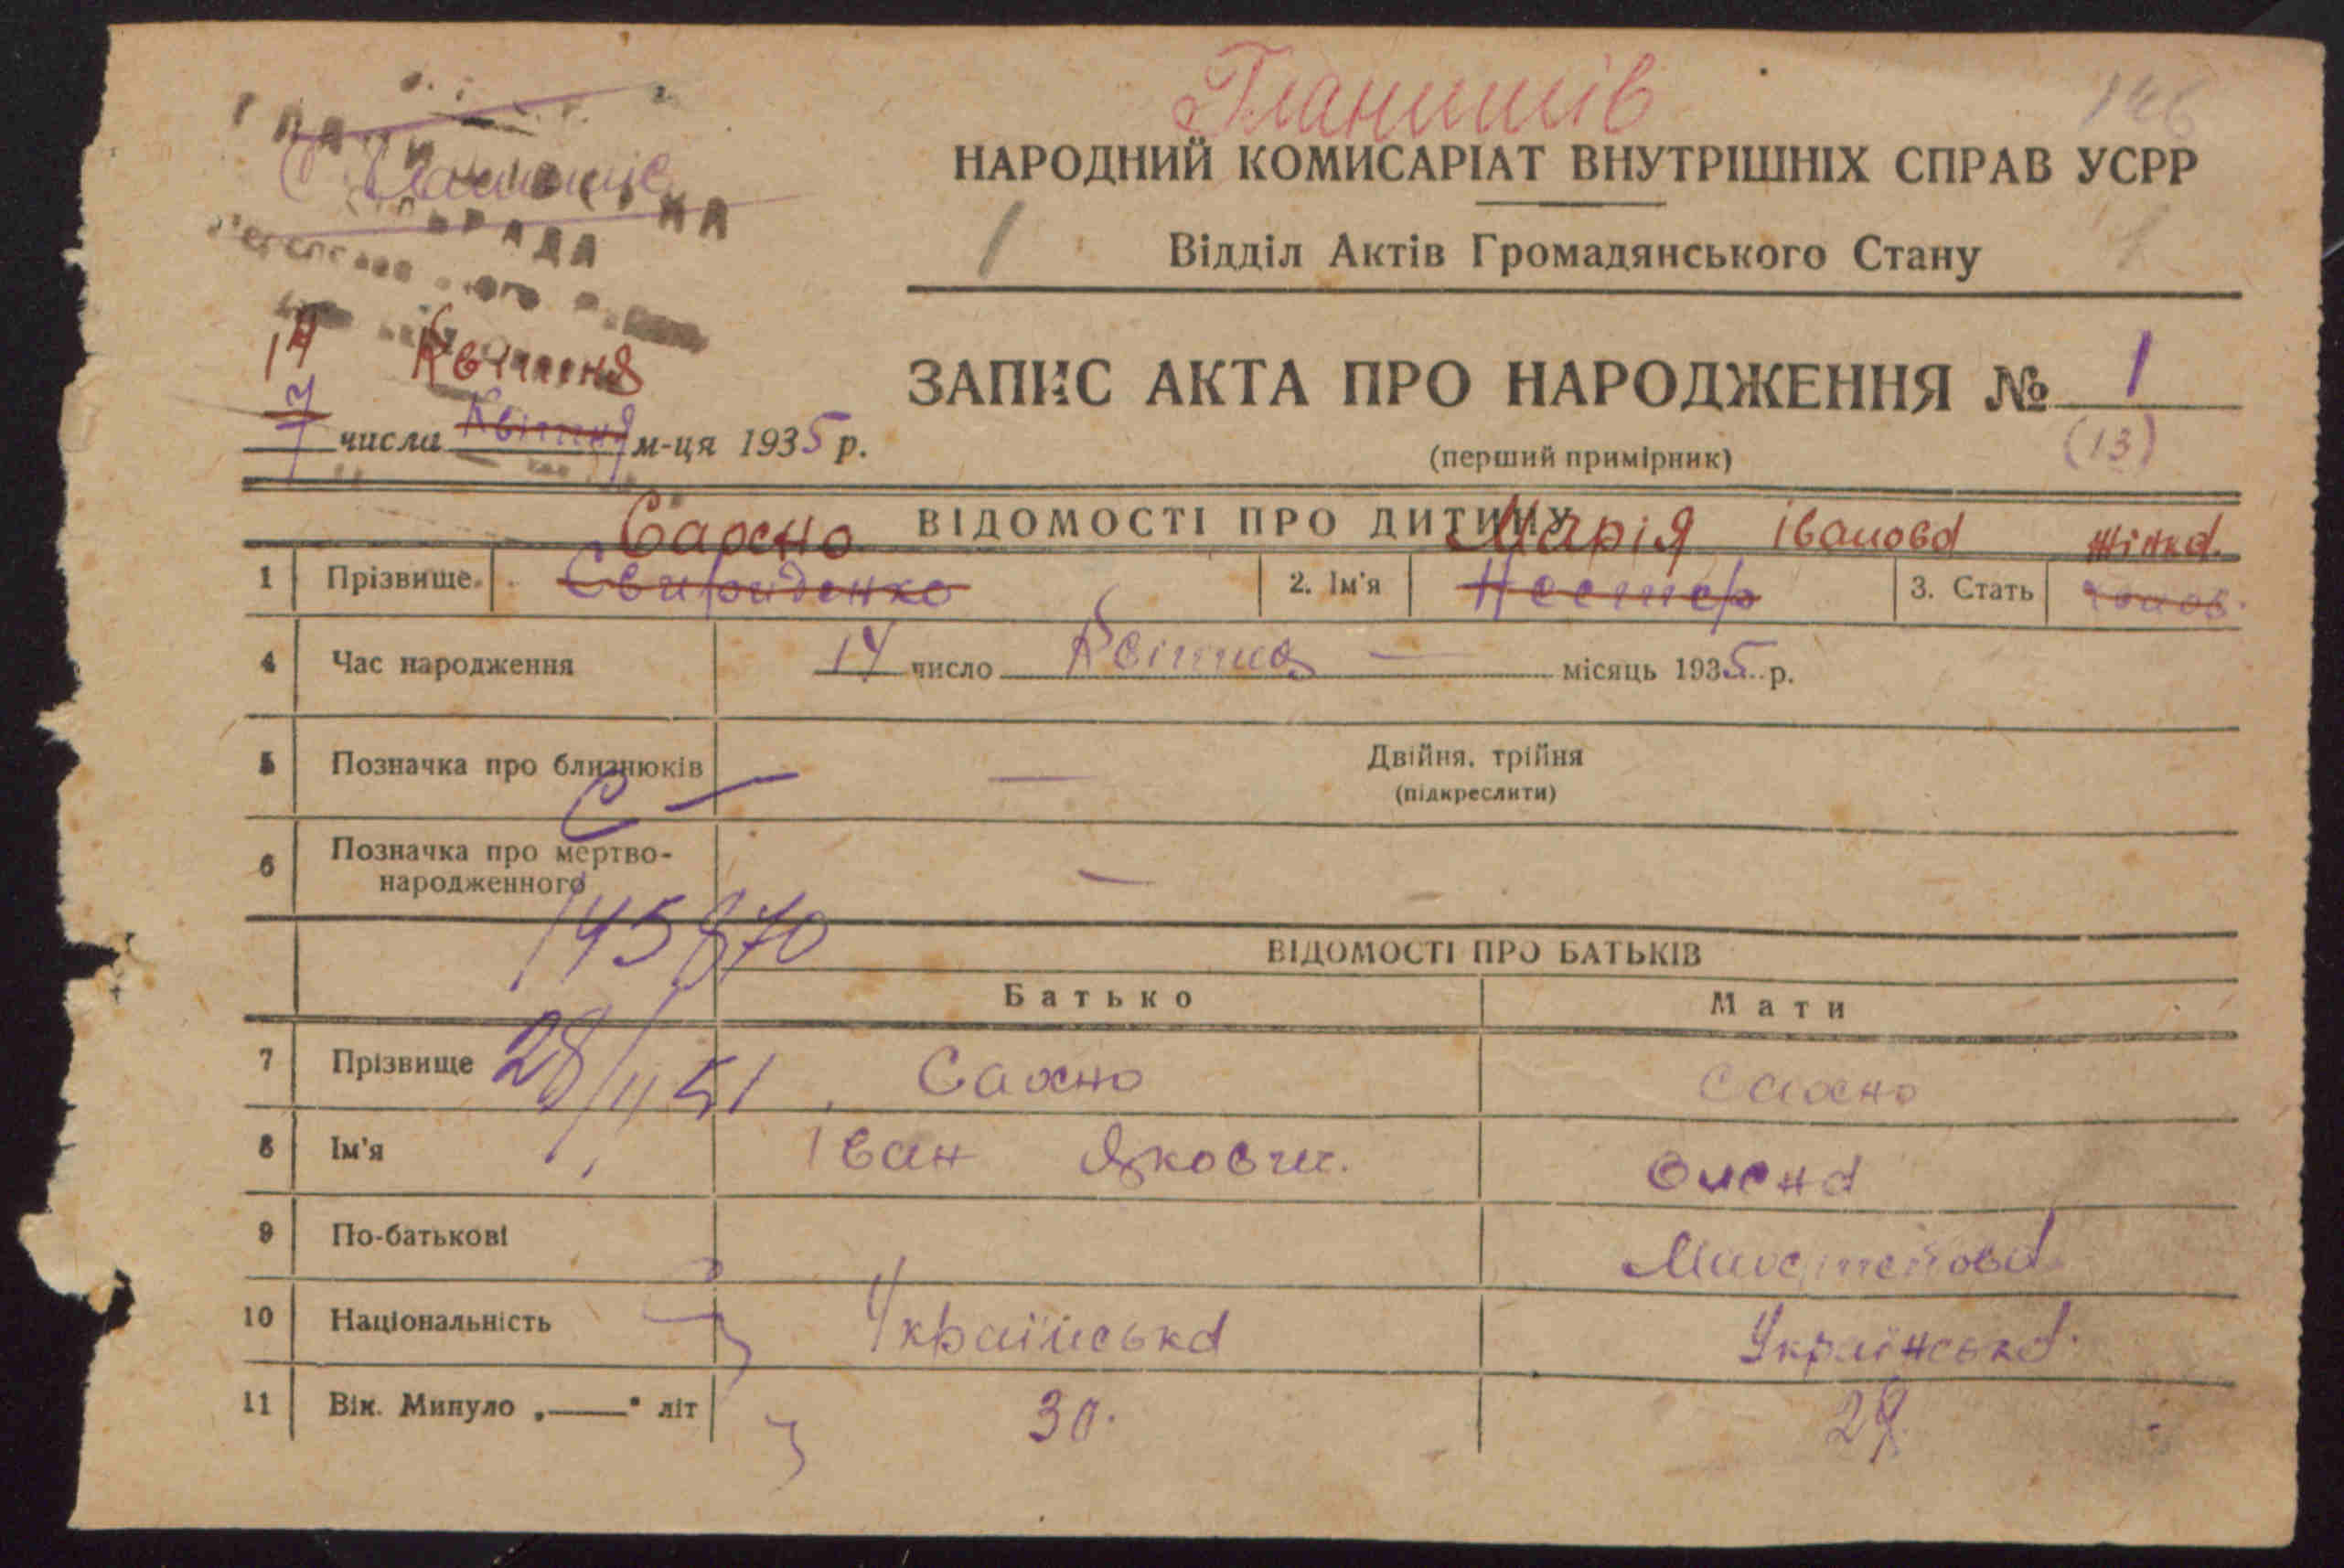 Гланишів
146
НАРОДНИЙ КОМИСАРІАТ ВНУТРІШНІХ СПРАВ УСРР
1
Відділ Актів Громадянського Стану
РАДА
14 Квітня
7 числа Квітня м-ця 1935 р.
ЗАПИС АКТА ПРО НАРОДЖЕННЯ № 1
(перший примірник)
(13)
ВІДОМОСТІ ПРО ДИТИНУ
Сахно Марія Іванова жінка.
1 Прізвище Свириденко 2. Ім'я Нестер 3. Стать
4 Час народження 14 число Квітня — місяць 1935 р.
5 Позначка про близнюків — Двійня, трійня
(підкреслити)
С —
6 Позначка про мертво-
народженного —
145870
ВІДОМОСТІ ПРО БАТЬКІВ
Батько Мати
28/II 51
7 Прізвище Сахно Сахно
8 Ім'я Іван Якович. Олена
9 По-батькові
10 Національність Українська Українська.
11 Вік. Минуло „——“ літ 30. 29.